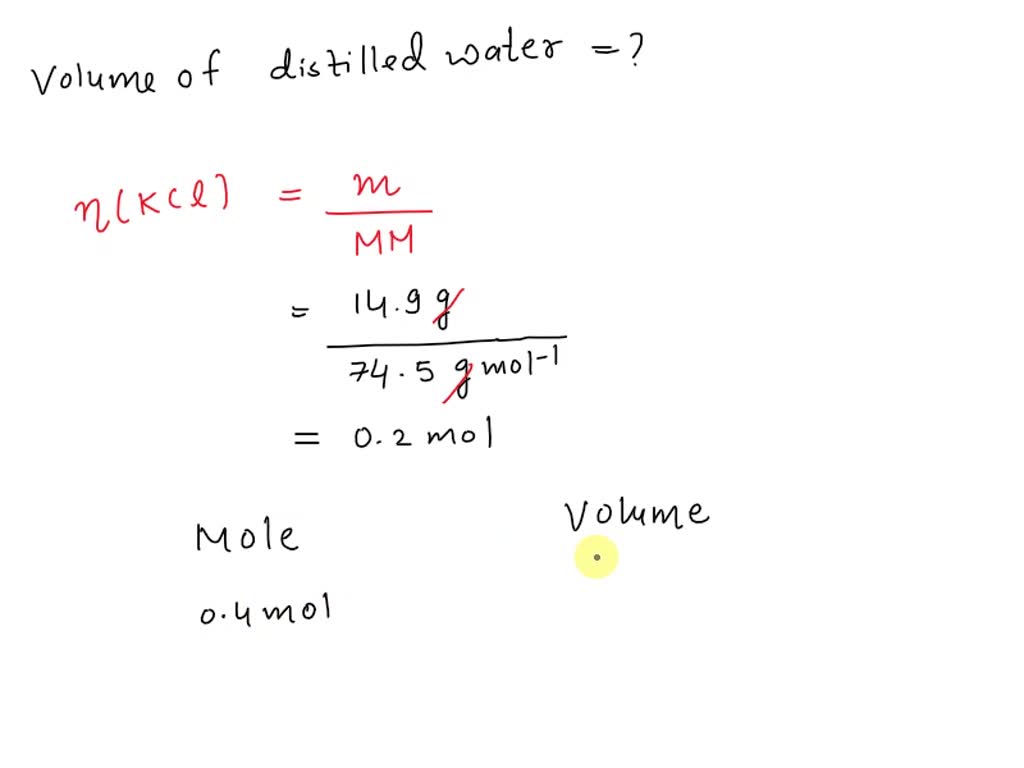 Volume of distilled water = ?
η(KCl) = m
MM
= 14.9 g
74.5 g mol-1
= 0.2 mol
Mole Volume
0.4 mol